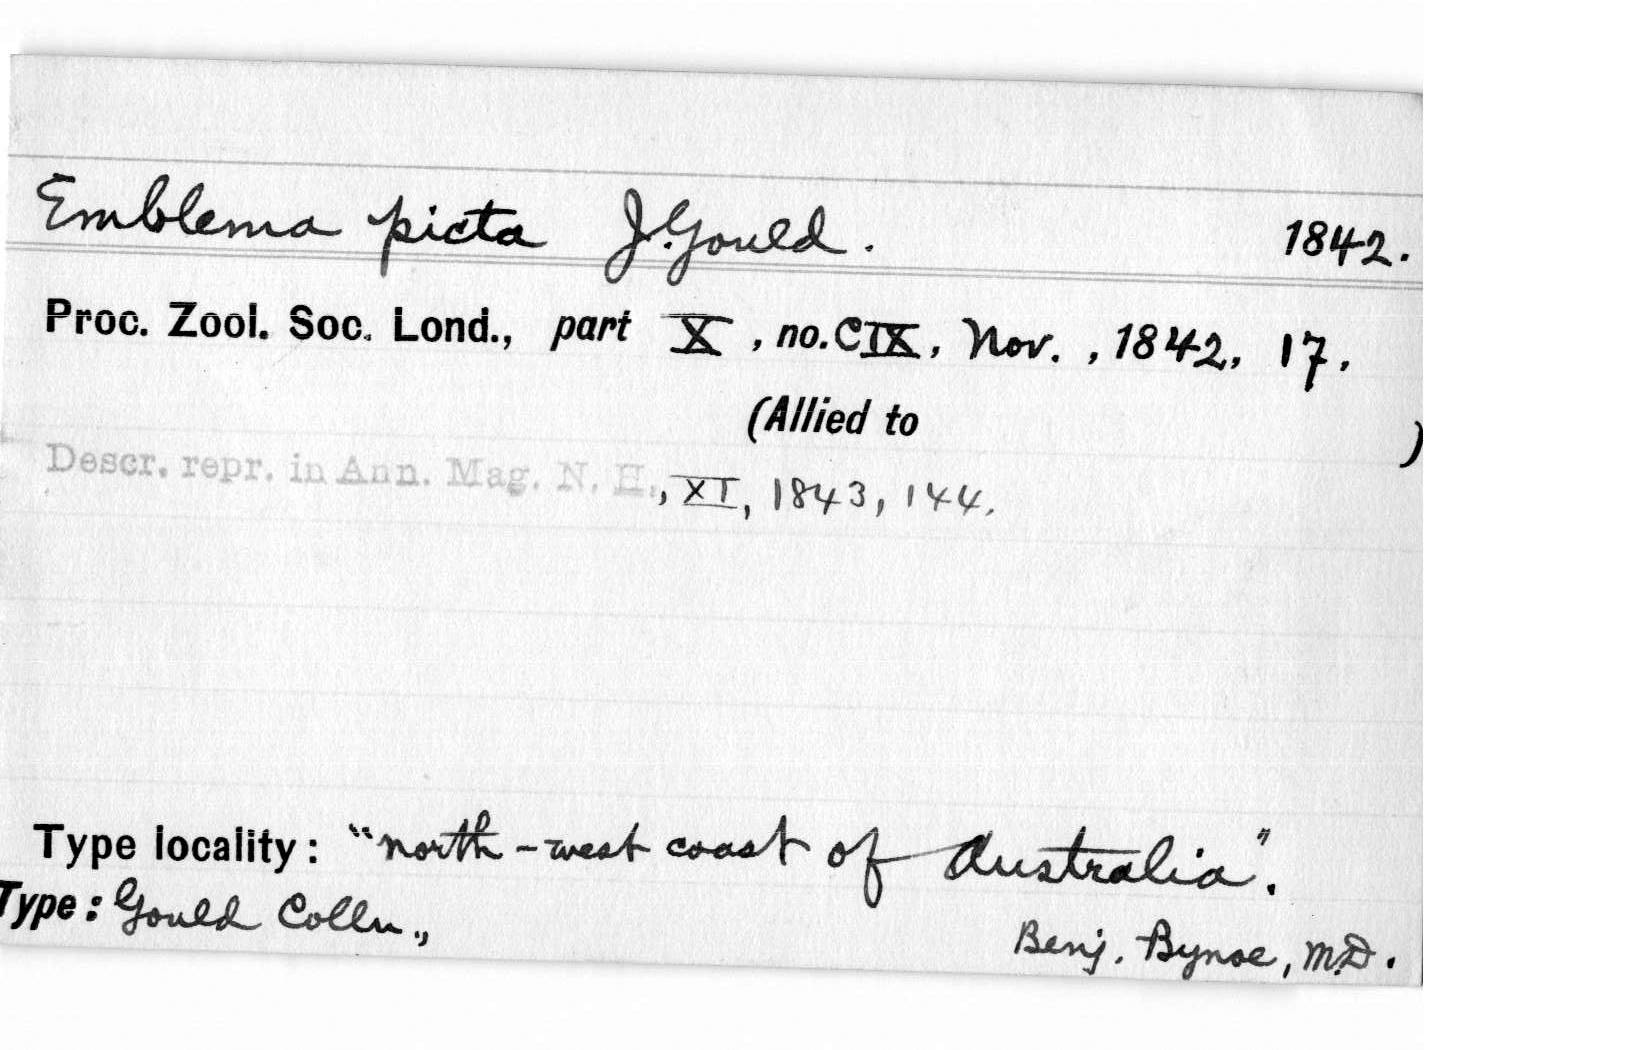 Emblema picta J. Gould. 1842.
Proc. Zool. Soc. Lond., part X, no. CIX, Nov., 1842, 17.
(Allied to )
Descr. repr. in Ann. Mag. N. H., XI, 1843, 144.
Type locality: "north-west coast of Australia".
Type: Gould Colln.,
Benj. Bynoe, M.D.